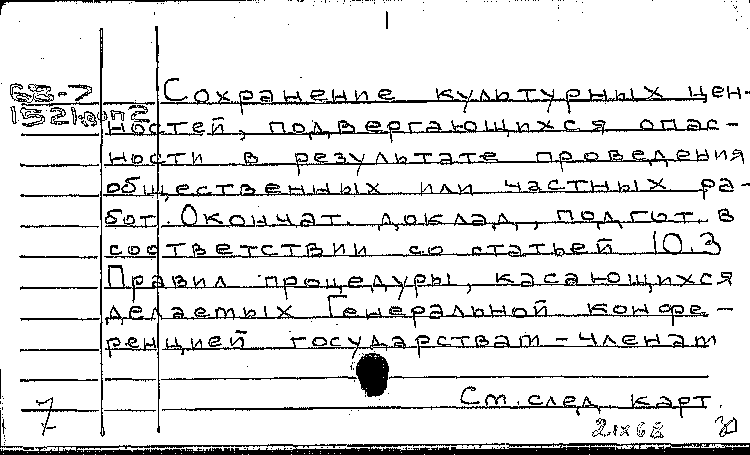 68-7
1521коп2
Сохранение культурных цен-
ностей, подвергающихся опас-
ности в результате проведения
общественных или частных ра-
бот. Окончат. доклад, подгот. в
соответствии со статьей 10.3
Правил процедуры, касающихся
делаемых Генеральной конфе-
ренцией государствам-членам
См. след. карт.
7
2 IX 68